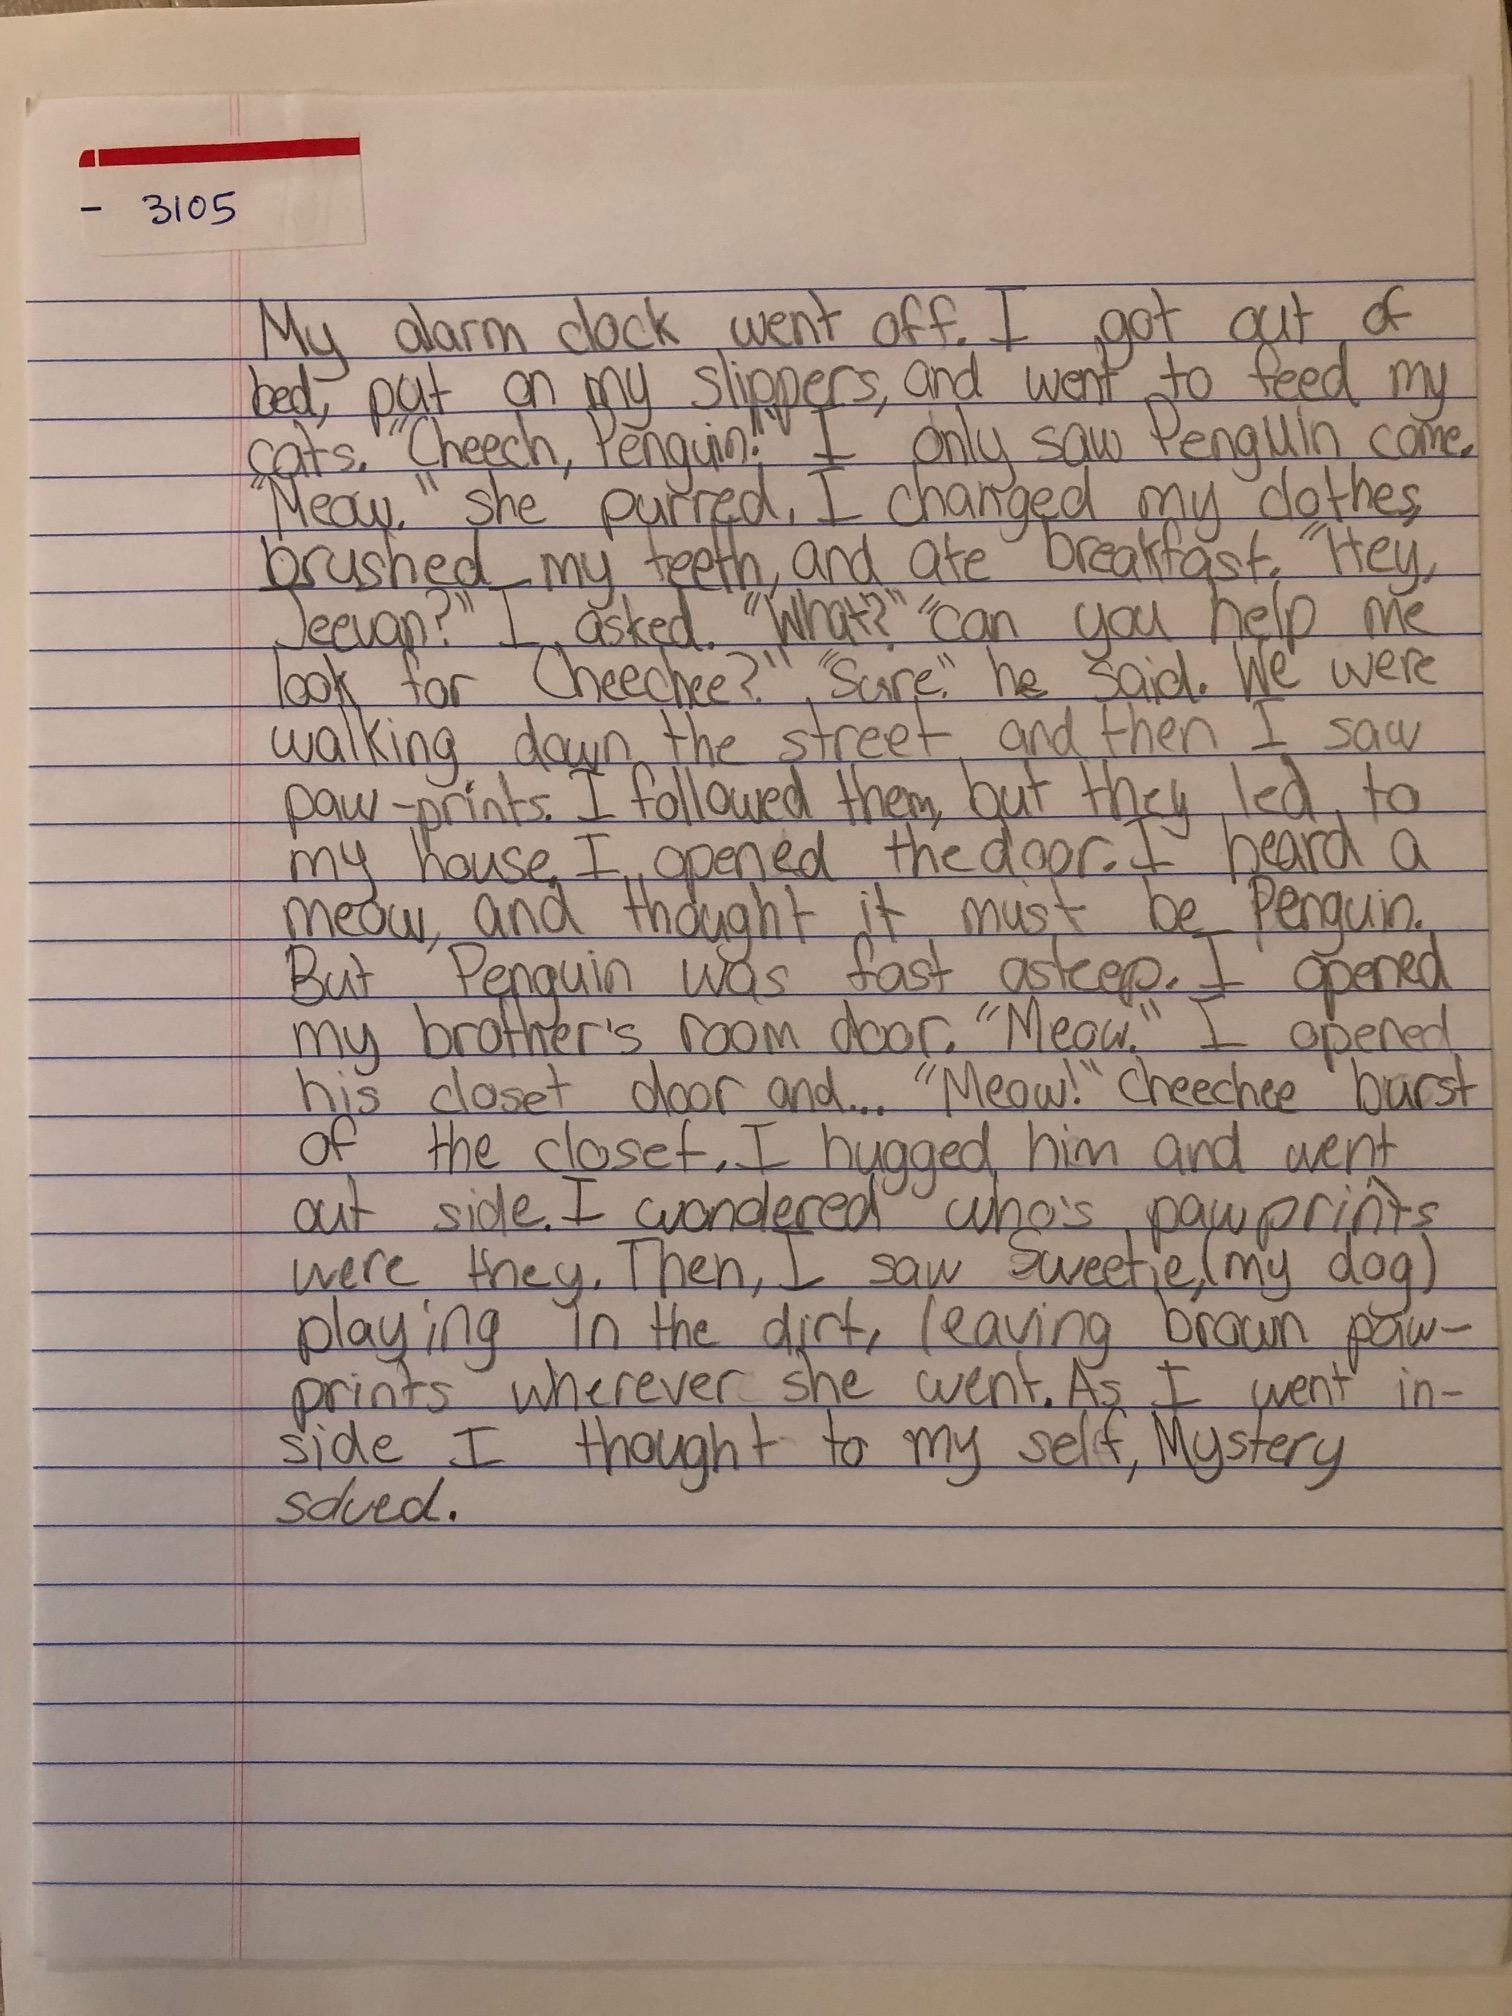 - 3105
My alarm clock went off. I got out of
bed, put on my slippers, and went to feed my
cats. "Cheech, Penguin!" I only saw Penguin come.
"Meow." she purred. I changed my clothes,
brushed my teeth, and ate breakfast. "Hey,
Jeevan?" I asked. "What?" "can you help me
look for Cheechee?" "Sure." he said. We were
walking down the street and then I saw
paw-prints. I followed them, but they led to
my house. I opened the door. I heard a
meow, and thought it must be Penguin.
But Penguin was fast asleep. I opened
my brother's room door. "Meow." I opened
his closet door and... "Meow!" Cheechee burst
of the closet. I hugged him and went
out side. I wondered who's pawprints
were they. Then, I saw Sweetie, (my dog)
playing in the dirt, leaving brown paw-
prints wherever she went. As I went in-
side I thought to my self, Mystery
solved.